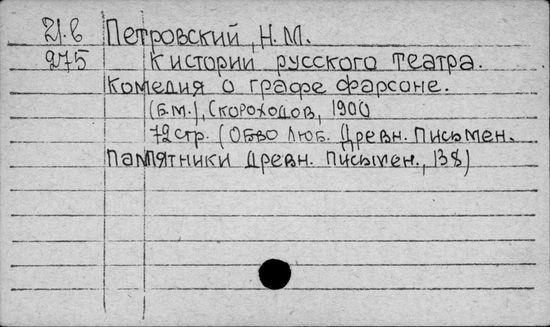 21.в Петровский, Н.М.
275 К истории русского театра.
Комедия о графе Фарсоне.
(Б.М.), Скороходов, 1900
72 стр. (Обво Люб. Древн. Письмен.
Памятники Древн. Письмен., 138)